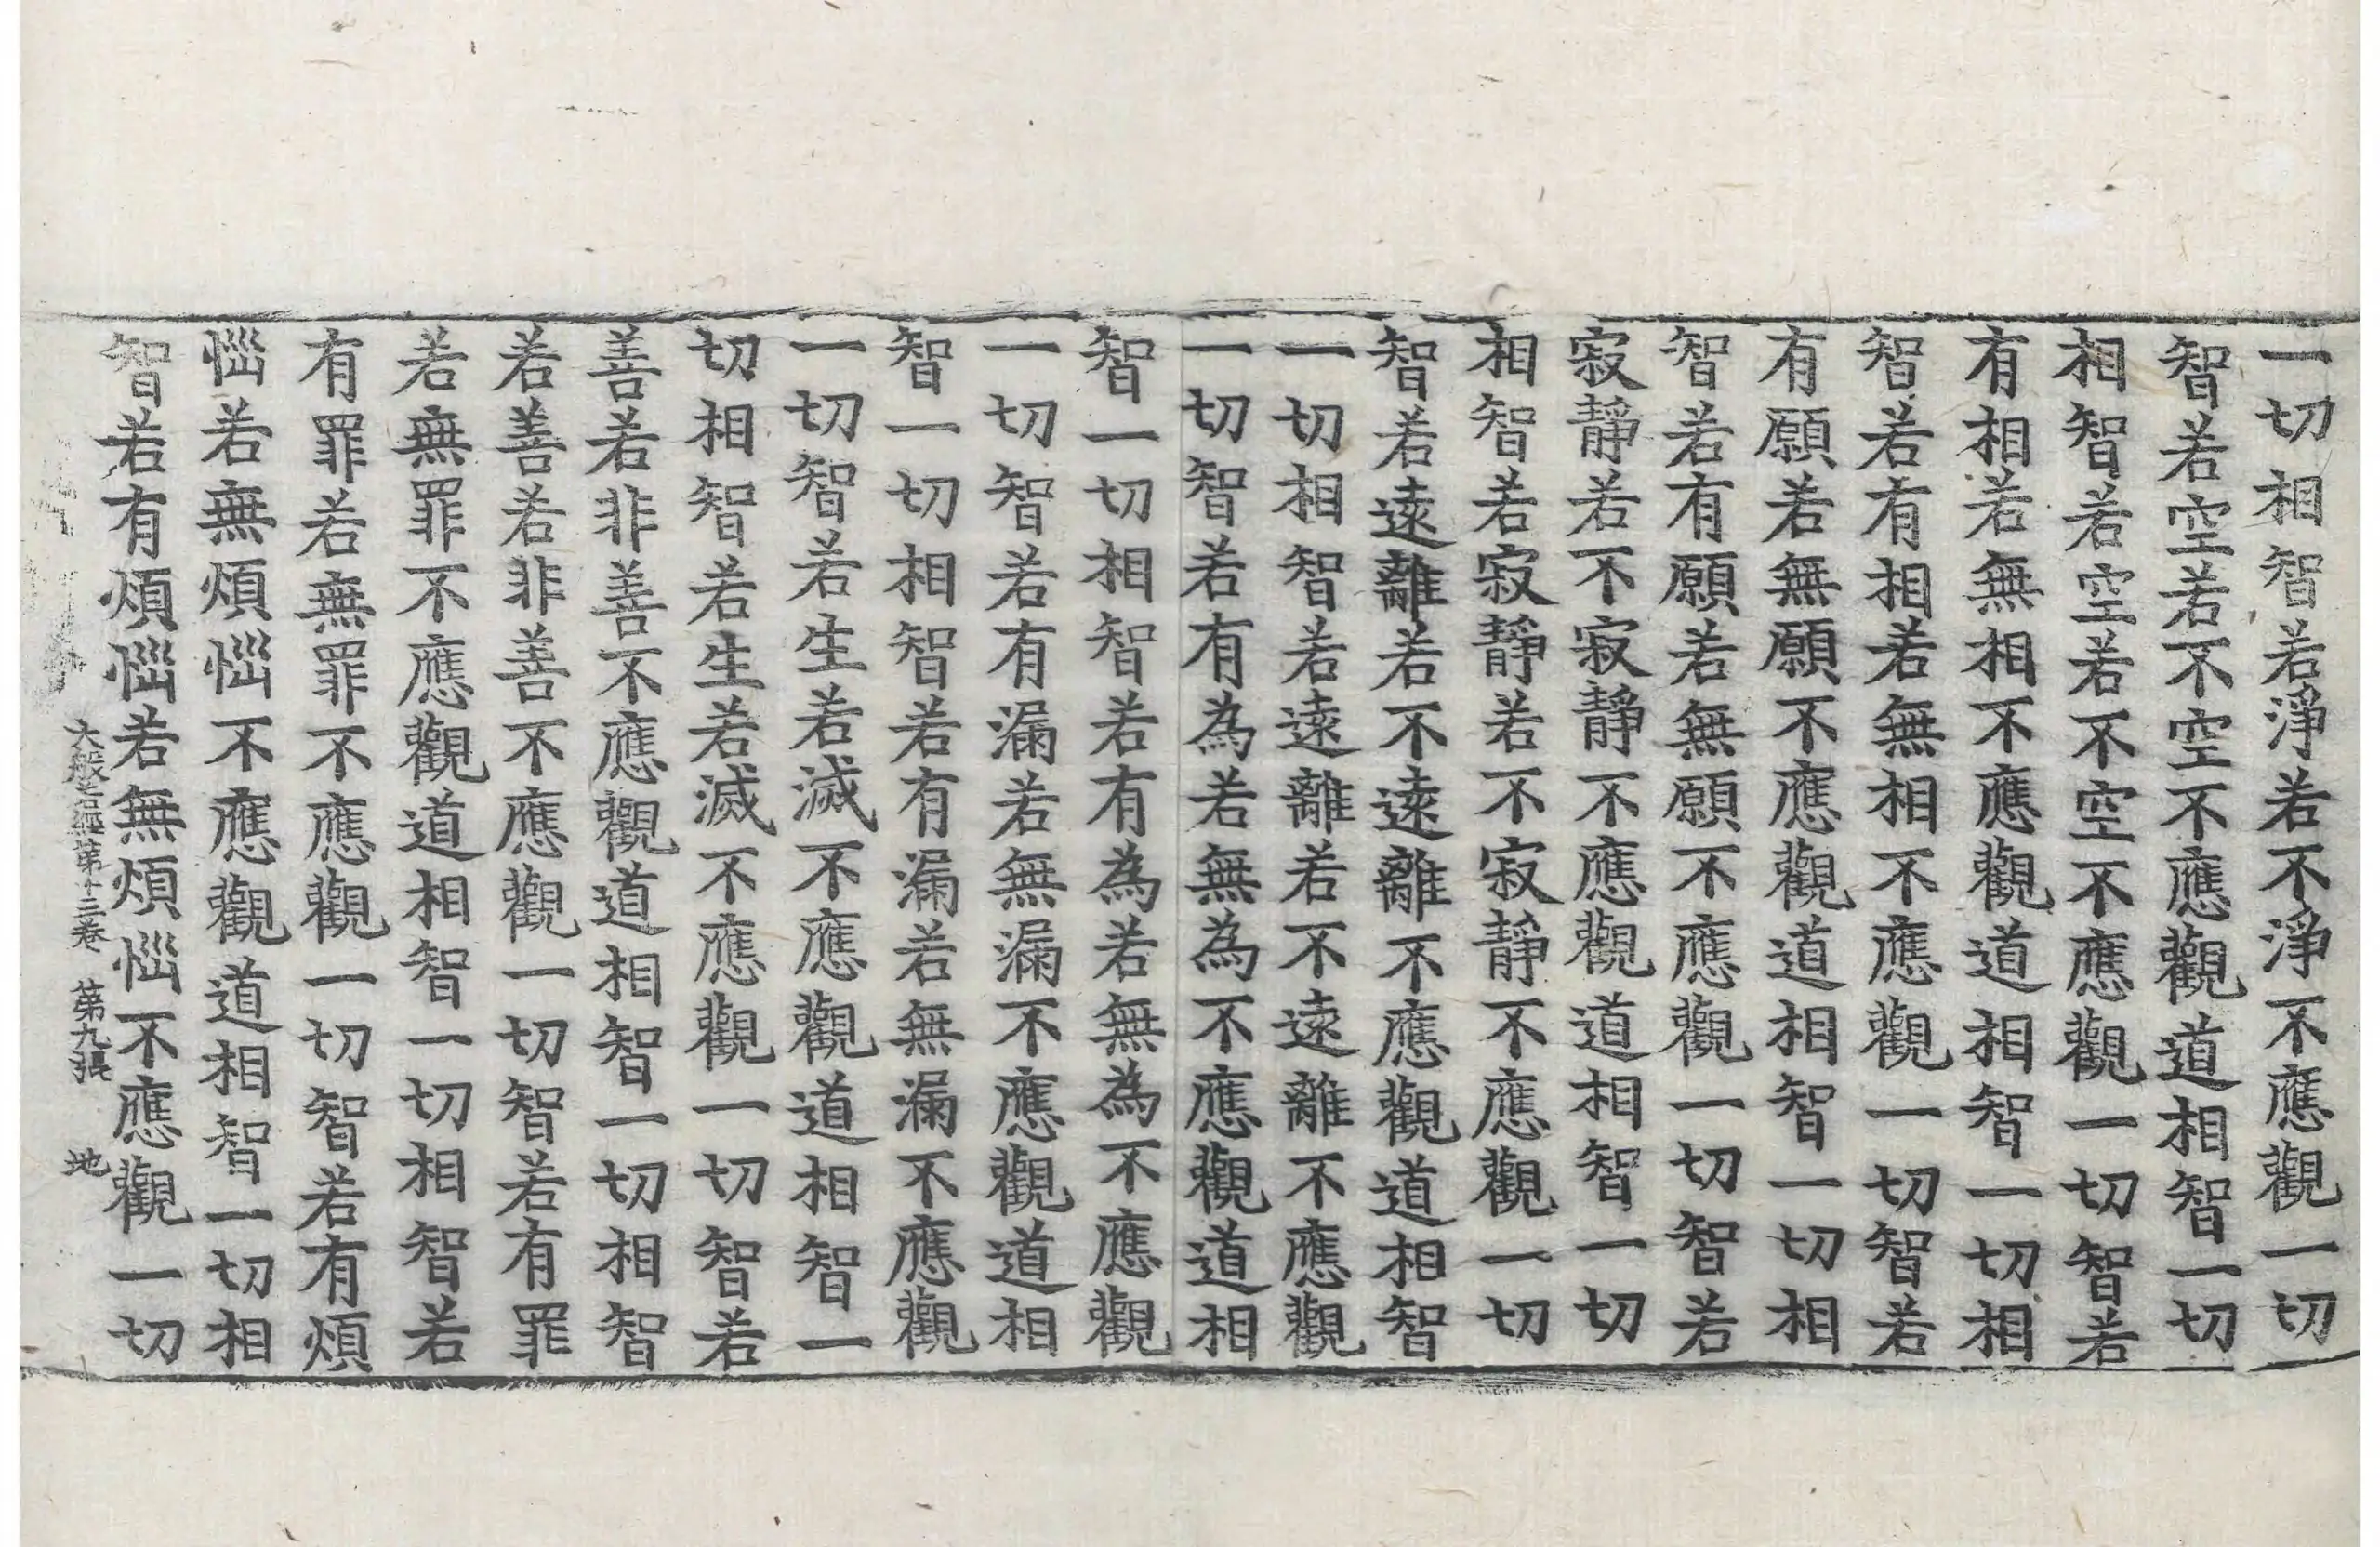 一切相智若淨若不淨不應觀一切
智若空若不空不應觀道相智一切
相智若空若不空不應觀一切智若
有相若無相不應觀道相智一切相
智若有相若無相不應觀一切智若
有願若無願不應觀道相智一切相
智若有願若無願不應觀一切智若
寂靜若不寂靜不應觀道相智一切
相智若寂靜若不寂靜不應觀一切
智若遠離若不遠離不應觀道相智
一切相智若遠離若不遠離不應觀
一切智若有為若無為不應觀道相
智一切相智若有為若無為不應觀
一切智若有漏若無漏不應觀道相
智一切相智若有漏若無漏不應觀
一切智若生若滅不應觀道相智一
切相智若生若滅不應觀一切智若
善若非善不應觀道相智一切相智
若善若非善不應觀一切智若有罪
若無罪不應觀道相智一切相智若
有罪若無罪不應觀一切智若有煩
惱若無煩惱不應觀道相智一切相
智若有煩惱若無煩惱不應觀一切
大般若經第十三卷 第九張 地